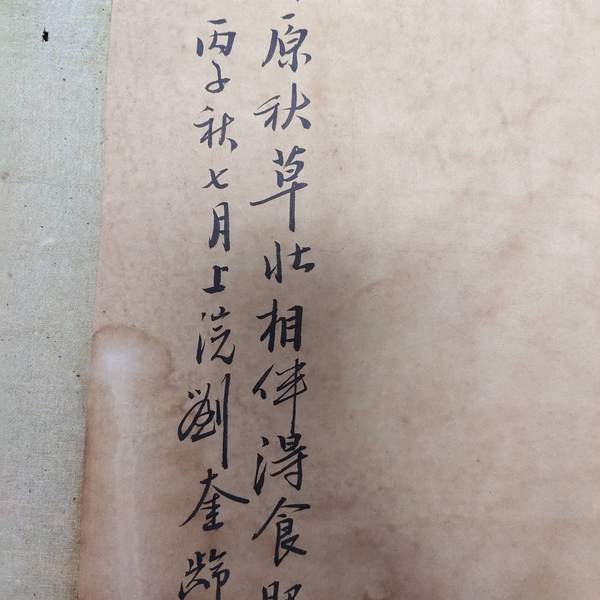 原秋草壮相伴得食
丙子秋七月上浣劉奎齡